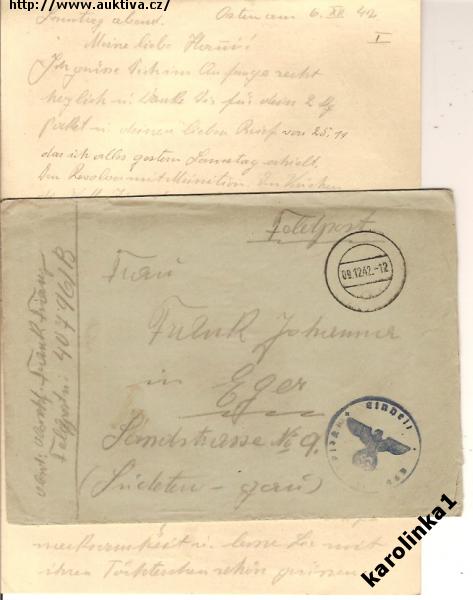 http://www.auktiva.cz/
Samstag abend. Osten am 6. XII. 42
I
Meine liebe Hanni!
Ich grüsse Dich im Anfange recht
herzlich u. danke Dir für dein 2 Kg
Paket u. deinen lieben Brief von 25.11
das ich alles gestern Samstag erhielt.
Feldpost
09.12.42.-12
Frau
Frank Johanna
in Eger
Landstrasse No 9.
(Sudeten-gau)
Frank Franz
Feldpost n: 40779/B
Einheit
u. lasse Sie mit
ihren Töchterchen schön grüssen
karolinka1